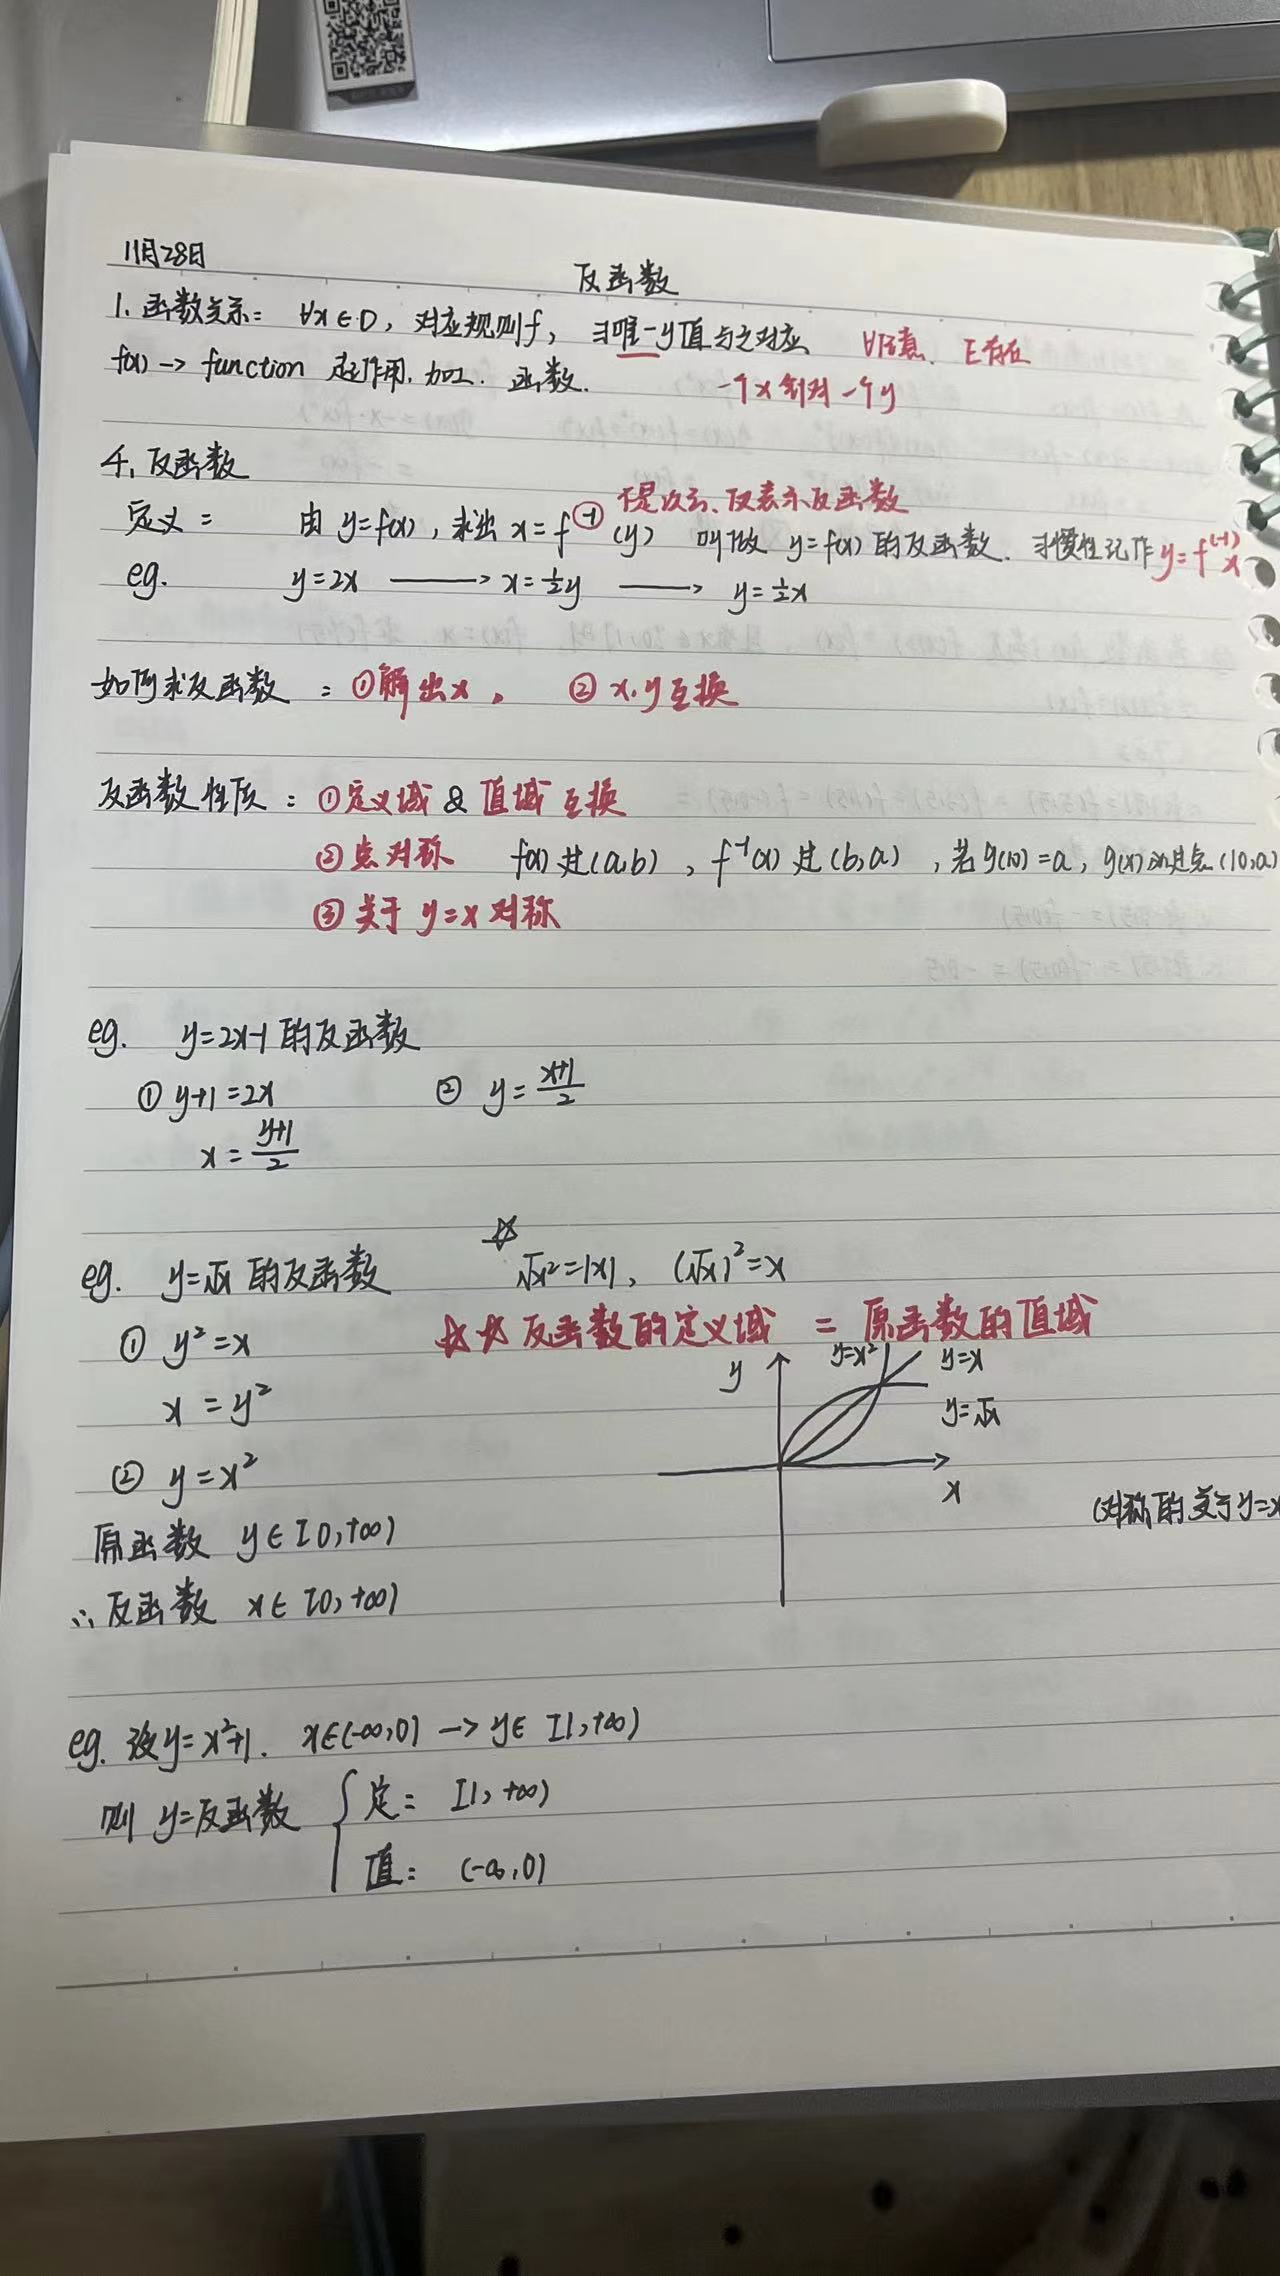 11月28日
反函数
1. 函数关系： ∀x∈D，对应规则f，∃唯一y值与之对应 ∀任意、E存在
f(x) → function 起作用，加工．函数． 一个x针对一个y
4. 反函数
不是次方、仅表示反函数
定义： 由 y=f(x)，求出 x=f⁽⁻¹⁾(y) 叫做 y=f(x) 的反函数．习惯性记作 y=f⁽⁻¹⁾x
eg. y=2x ⟶ x=½y ⟶ y=½x
如何求反函数：①解出x， ②x.y互换
反函数性质：①定义域 & 值域 互换
②点对称 f(x)过(a,b)，f⁻¹(x)过(b,a)，若g(10)=a，g(x)必过点(10,a)
③关于 y=x 对称
eg. y=2x-1 的反函数
① y+1=2x ② y=(x+1)/2
x=(y+1)/2
☆
eg. y=√x 的反函数 √x²=|x|，(√x)²=x
① y²=x ☆☆ 反函数的定义域 = 原函数的值域
y y=x² y=x
x=y² y=√x
② y=x² x
(对称的关于y=x
原函数 y∈[0,+∞)
∴反函数 x∈[0,+∞)
eg. 设y=x²+1． x∈(-∞,0) → y∈[1,+∞)
则 y=反函数 { 定： [1,+∞)
值： (-∞,0)